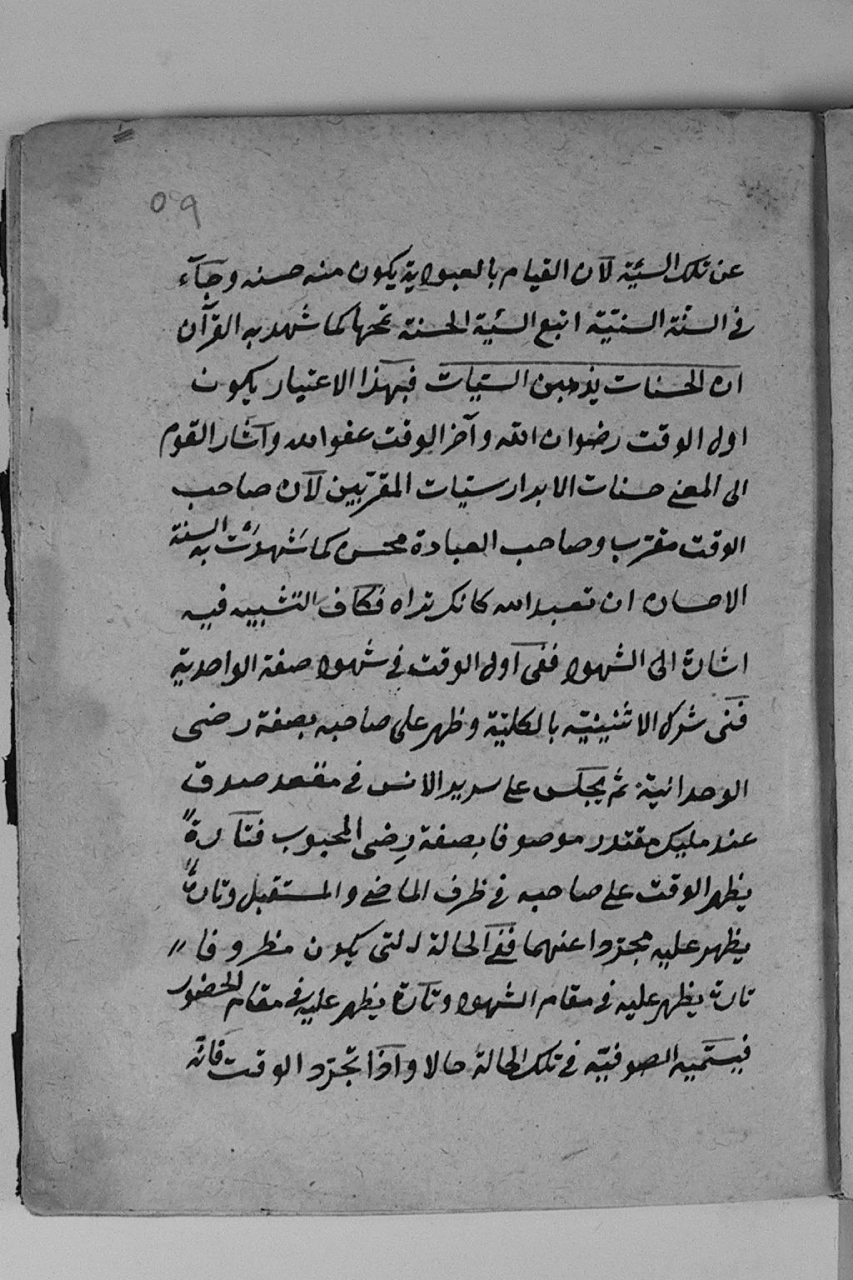 ٥٩
عن تلك السئية لآن القيام بالعبودية يكون منه حسنه وجآء
فى السنّة السنيّة اتبع السئية الحسنة تمحها كما شهد به القرآن
ان الحسنات يذهبن السيّات فبهذا الاعتبار يكون
اول الوقت رضوان الله وآخر الوقت عفو الله وآشار القوم
الى المعنى حسنات الابرار سيّات المقرّبين لآن صاحب
الوقت مقرّب وصاحب العبادة محسن كما شهدت به السنة
الاحسان ان تعبد الله كانك تراه فكاف التشبيه فيه
اشارة الى الشهود ففى آول الوقت فى شهود صفة الواحدية
فنى شرك الاثنينيّة بالكليّة وظهر على صاحبه بصفة رضى
الوحدانية ثم يجلس على سرير الانس فى مقعد صدق
عند مليك مقتدر موصوفا بصفة رضى المحبوب فتآرة
يظهر الوقت على صاحبه فى ظرف الماضى والمستقبل وتارة
يظهر عليه مجرّدا عنهما ففى الحالة التى يكون مظروفا
تارة يظهر عليه فى مقام الشهود وتآرة يظهر عليه فى مقام الحضور
فيسمّيه الصوفيّه فى تلك الحالة حالا وآذا تجرّد الوقت فآنّه